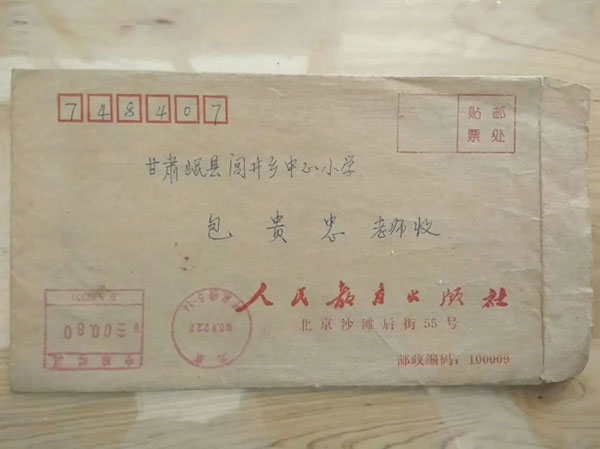 748407
贴 邮
票 处
甘肃岷县闾井乡中心小学
包贵忠 老师收
人民教育出版社
北京沙滩后街55号
邮政编码：100009
00.80
北京